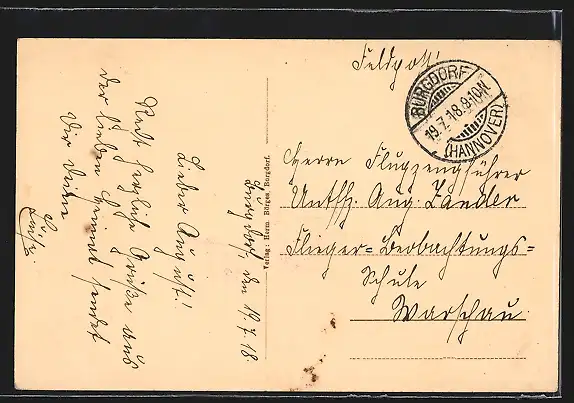 Feldpost!
BURGDORF
19.7.18.9-10N.
(HANNOVER)
Herrn Flugzeugführer
Untffz. Aug. Zander
Flieger=Beobachtungs=
Schule
Warschau.
Verlag: Herm. Bürges, Burgdorf.
Burgdorf, den 19.7.18.
Lieber August!
Recht herzliche Grüße aus
der lieben Heimat sendet
Dir Deine